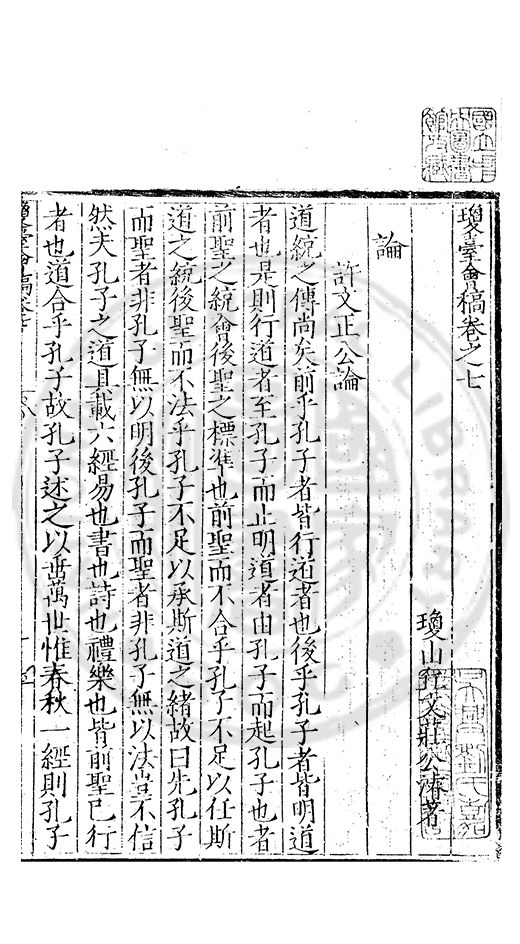 瓊臺會稿卷之七
瓊山丘文莊公濬著
論
許文正公論
道統之傳尚矣前乎孔子者皆行道者也後乎孔子者皆明道
者也是則行道者至孔子而止明道者由孔子而起孔子也者
前聖之統會後聖之標準也前聖而不合乎孔子不足以任斯
道之統後聖而不法乎孔子不足以承斯道之緒故曰先孔子
而聖者非孔子無以明後孔子而聖者非孔子無以法豈不信
然夫孔子之道具載六經易也書也詩也禮樂也皆前聖已行
者也道合乎孔子故孔子述之以詔萬世惟春秋一經則孔子
瓊臺會稿卷七